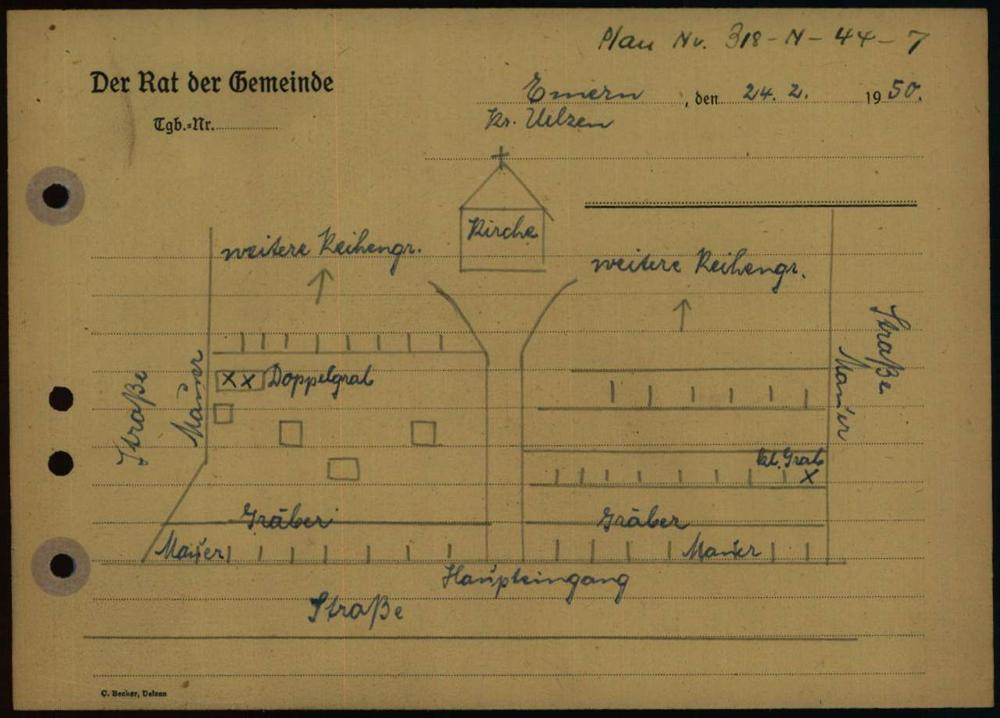 Plan Nr. 318-N-44-7
Der Rat der Gemeinde
Emern, den 24. 2. 1950.
Tgb.-Nr.
Kr. Uelzen
Kirche
weitere Reihengr.
weitere Reihengr.
Straße
Mauer
Doppelgrab
xx
Straße
Mauer
kl. Grab
x
Gräber
Gräber
Mauer
Mauer
Haupteingang
Straße
C. Becker, Uelzen